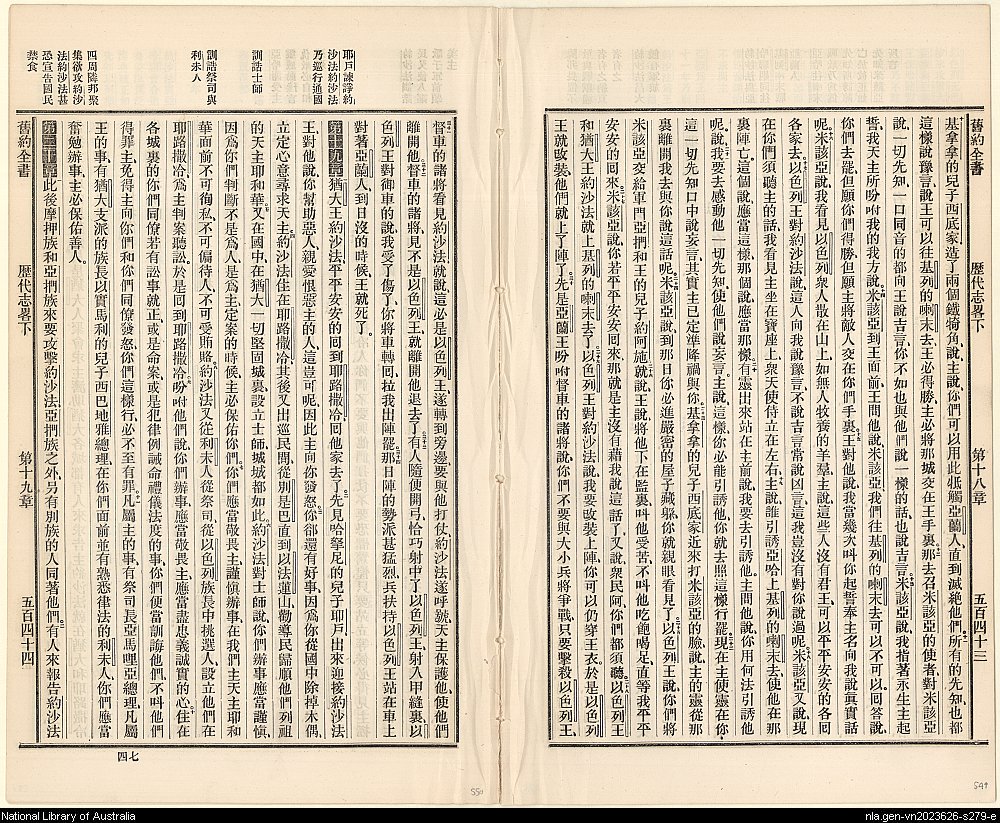 舊約全書 歷代志畧下 第十八章 五百四十三
基拿拿的兒子西底家造了兩個鐵犄角說主說你們可以用此牴觸亞蘭人直到滅絕他們所有的先知也都
這樣說豫言說王可以往基列的喇末去王必得勝主必將那城交在王手裏那去召米該亞的使者對米該亞
說一切先知一口同音的都向王說吉言你不如也與他們說一樣的話也說吉言米該亞說我指著永生主起
誓我天主所吩咐我的我方說米該亞到王面前王問他說米該亞我們往基列的喇末去可以不可以回答說
你們去罷但願你們得勝但願主將敵人交在你們手裏王對他說我當幾次呌你起誓奉主名向我說真實話
呢米該亞說我看見以色列衆人散在山上如無人牧養的羊羣主說這些人沒有君王可以平平安安的各回
各家去以色列王對約沙法說這人向我說豫言不說吉言常說凶言這我豈沒有對你說過呢米該亞又說現
在你們須聽主的話我看見主坐在寶座上衆天使侍立在左右主說誰引誘亞哈上基列的喇末去使他在那
裏陣亡這個說應當這樣那個說應當那樣有靈出來站在主前說我要去引誘他主問他說你用何法引誘他
呢說我要去感動他一切先知使他們說妄言主說這樣你必能引誘他你就去照這樣行罷現在主使靈在你
這一切先知口中說妄言其實主已定準降禍與你基拿拿的兒子西底家近來打米該亞的臉說主的靈從那
裏離開我去與你說這話呢米該亞說到那日你必進嚴密的屋子藏躱你就親眼看見了以色列王說你們將
米該亞交給軍門亞們和王的兒子約阿施就說王說將他下在監裏呌他受苦不呌他吃飽喝足直等我平平
安安的回來米該亞說你若平平安安回來那就是主沒有藉我說這話了又說衆民阿你們都須聽以色列王
和猶大王約沙法就上基列的喇末去了以色列王對約沙法說我要改裝上陣你可以仍穿王衣於是以色列
王就改裝他們就上了陣了先是亞蘭王吩咐督車的諸將說你們不要與大小兵將爭戰只要擊殺以色列王
督車的諸將看見約沙法就說這必是以色列王遂轉到旁邊要與他打仗約沙法遂呼號天主保護他使他們
離開他督車的諸將見不是以色列王就離開他退去了有人隨便開弓恰巧射中了以色列王射入甲縫裏以
色列王對御車的說我受了傷了你將車轉回拉我出陣罷那日陣的勢派甚猛烈兵扶持以色列王站在車上
對著亞蘭人到日沒的時候王就死了
第十九章猶大王約沙法平平安安的回到耶路撒冷回他家去了先見哈拏尼的兒子耶戶出來迎接約沙法
王對他說你幫助惡人親愛恨惡主的人這豈可呢因此主向你發怒你卻還有好事因爲你從國中除掉木偶
立定心意尋求天主約沙法住在耶路撒冷其後又出巡民間從別是巴直到以法蓮山勸導民歸順他們列祖
的天主耶和華又在國中在猶大一切堅固城裏設立士師城城都如此約沙法對士師說你們辦事應當謹愼
因爲你們判斷不是爲人是爲主定案的時候主必保佑你們你們應當敬畏主謹愼辦事在我們主天主耶和
華面前不可徇私不可偏待人不可受賄賂約沙法又從利未人從祭司從以色列族長中挑選人設立他們在
耶路撒冷爲主判案聽訟於是回到耶路撒冷吩咐他們說你們辦事應當敬畏主應當盡忠義誠實的心住在
各城裏的你們同僚若有訟事就正或是命案或是犯律例誡命禮儀法度的事你們便當訓誨他們不呌他們
得罪主免得主向你們和你們同僚發怒你們這樣行必不至有罪凡屬主的事有祭司長亞馬哩亞總理凡屬
王的事有猶大支派的族長以實馬利的兒子西巴地雅總理在你們面前並有熟悉律法的利未人你們應當
奮勉辦事主必保佑善人
第二十章此後摩押族和亞捫族來要攻擊約沙法亞捫族之外另有別族的人同著他們有人來報告約沙法
舊約全書 歷代志畧下 第十九章 五百四十四
耶戶諫諍約
沙法約沙法
乃巡行通國
訓誥士師
訓誥祭司與
利未人
四周隣邦聚
集欲攻約沙
法約沙法甚
恐宣告國民
禁食
四七
550
549
National Library of Australia
nla.gen-vn2023626-s279-e